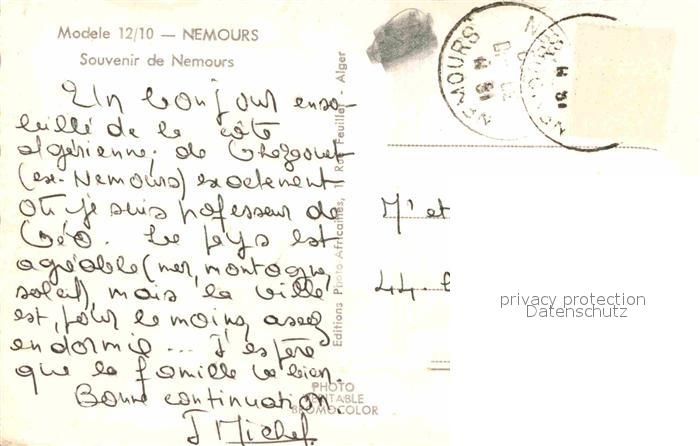 Modele 12/10 — NEMOURS
Souvenir de Nemours
Un bonjour enso-
leillé de la côte
algérienne, de Ghazaouet
(ex-Nemours) exactement
où je suis professeur de
Géo. Le pays est
agréable (mer, montagne,
soleil), mais la ville
est, pour le moins, assez
endormie ... J'espère
que la famille va bien.
Bonne continuation.
J Michel
Editions Photo Africaines, 1 Rue Feuillet - Alger
PHOTO
VERITABLE
BROMOCOLOR
NEMOURS
NEMOURS
M' et
44
privacy protection
Datenschutz